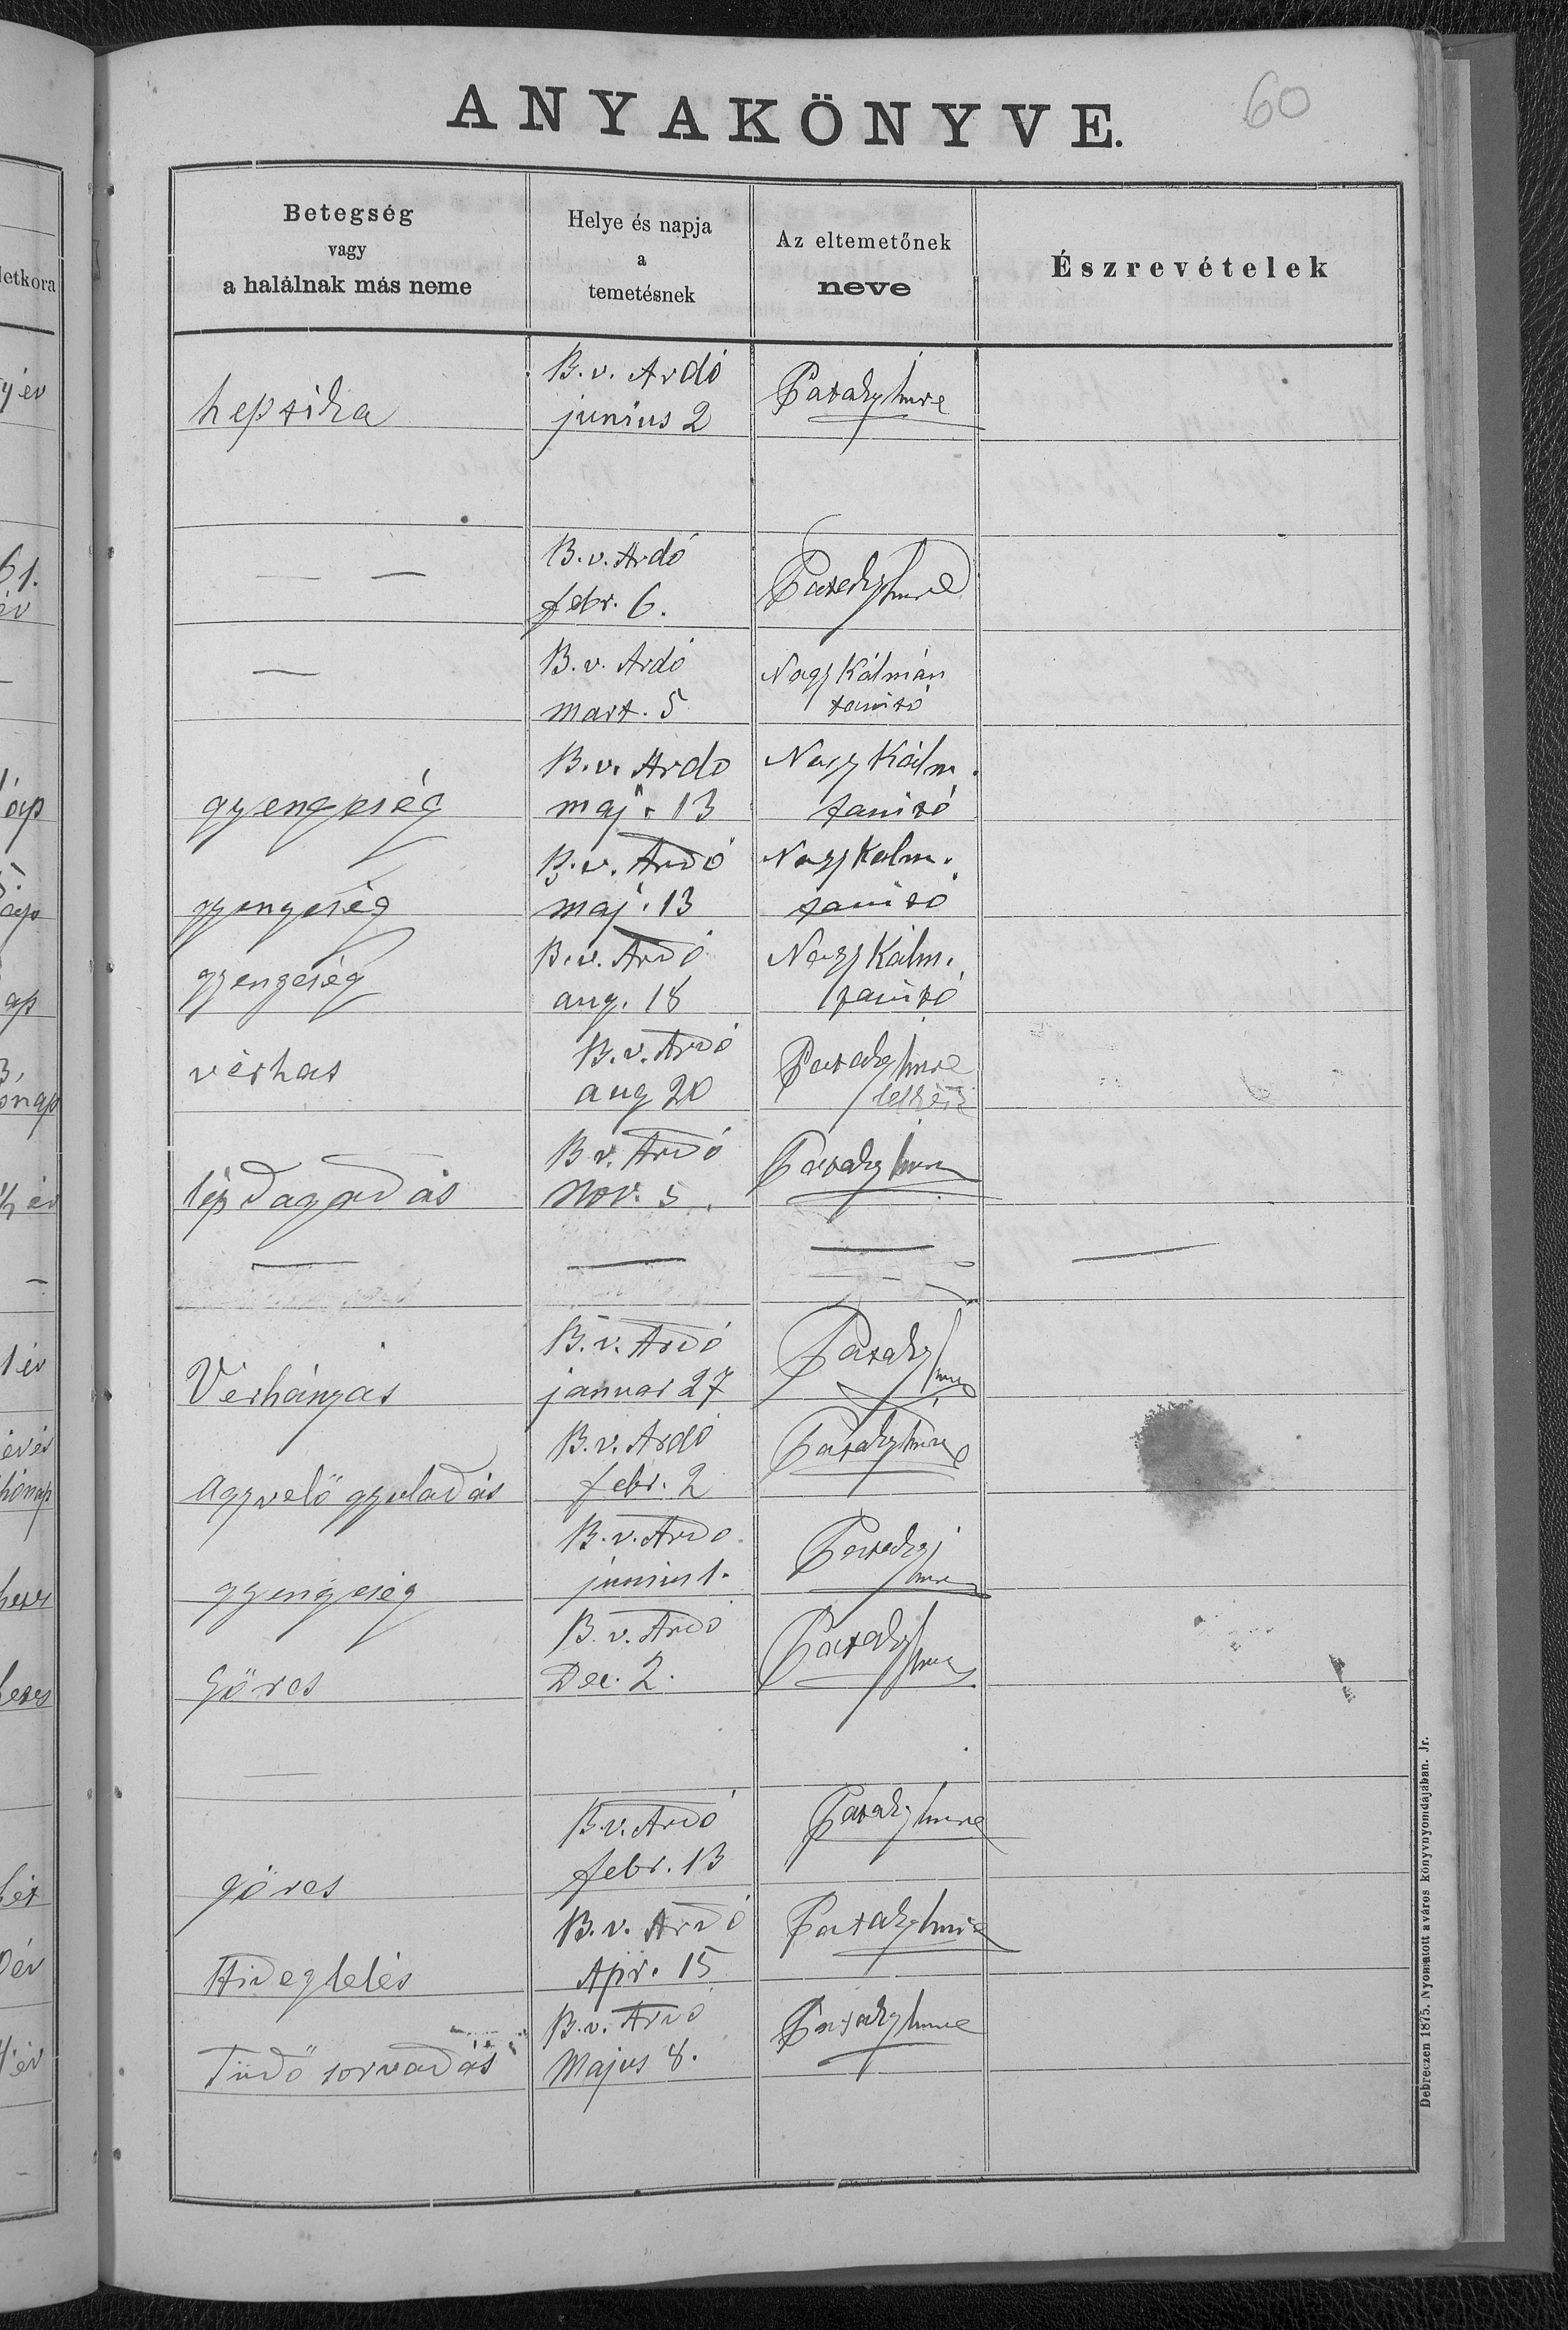 60
ANYAKÖNYVE.
Betegség
vagy
a halálnak más neme
Helye és napja
a
temetésnek
Az eltemetőnek
neve
Észrevételek
letkora
B. v. Ardó
heptika junius 2 Pataky Imre
— — B. v. Ardó Pataky Imre
febr. 6.
— B. v. Ardó Nagy Kálmán
mart. 5 tanitó
B. v. Ardo Nagy Kálm.
gyengeség maj. 13 tanitó
B. v. Ardó Nagy Kalm.
gyengeség maj. 13 tanitó
gyengeség B. v. Ardó Nagy Kálm.
aug. 18 tanitó
vérhas B. v. Ardó Pataky Imre
aug 20 lelkész
B. v. Ardó Pataky Imre
lép dagadás nov. 5.
— — — —
B. v. Ardó Pataky Imre
Vérhányas januar 27
B. v. Ardó Pataky Imre
Agyvelő gyuladás febr. 2
B. v. Ardo Pataky Imre
gyengeség junius 1.
B. v. Ardó Pataky Imre
Görcs Dec. 2.
—
B. v. Ardó Pataky Imre
görcs febr. 13
B. v. Ardó Pataky Imre
Hideglelés Apr. 15
B. v. Ardó Pataky Imre
Tüdő sorvadás Majus 8.
Debreczen 1875. Nyomatott a város könyvnyomdájában. Jr.